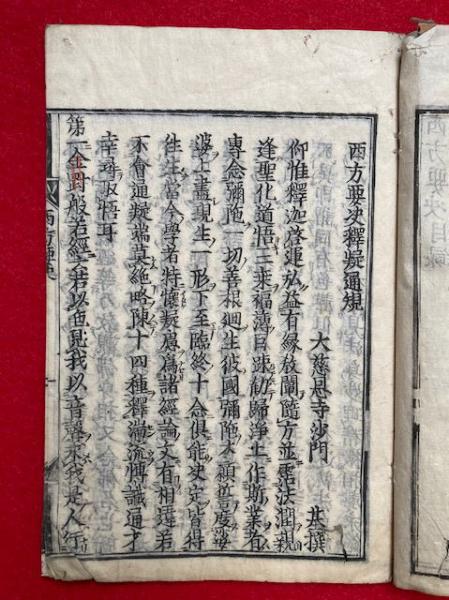 西方要决目録
西方要决釋疑通規
大慈恩寺沙門 基撰
仰惟釋迦啓運弘益有縁教闡隨方並霑法潤親
逢聖化道悟三乗福薄因踈勧歸淨土作斯業者
專念彌陁一切善根廻生彼國彌陁本願誓度娑
婆上盡現生一形下至臨終十念俱能决定皆得
徃生當今學者特懷疑慮為諸經論文有相違若
不會通疑端莫絶略陳十四種釋滯流情識通才
幸尋取悟耳
第一金剛般若經云若以色見我以音聲求我是人行
西方要决